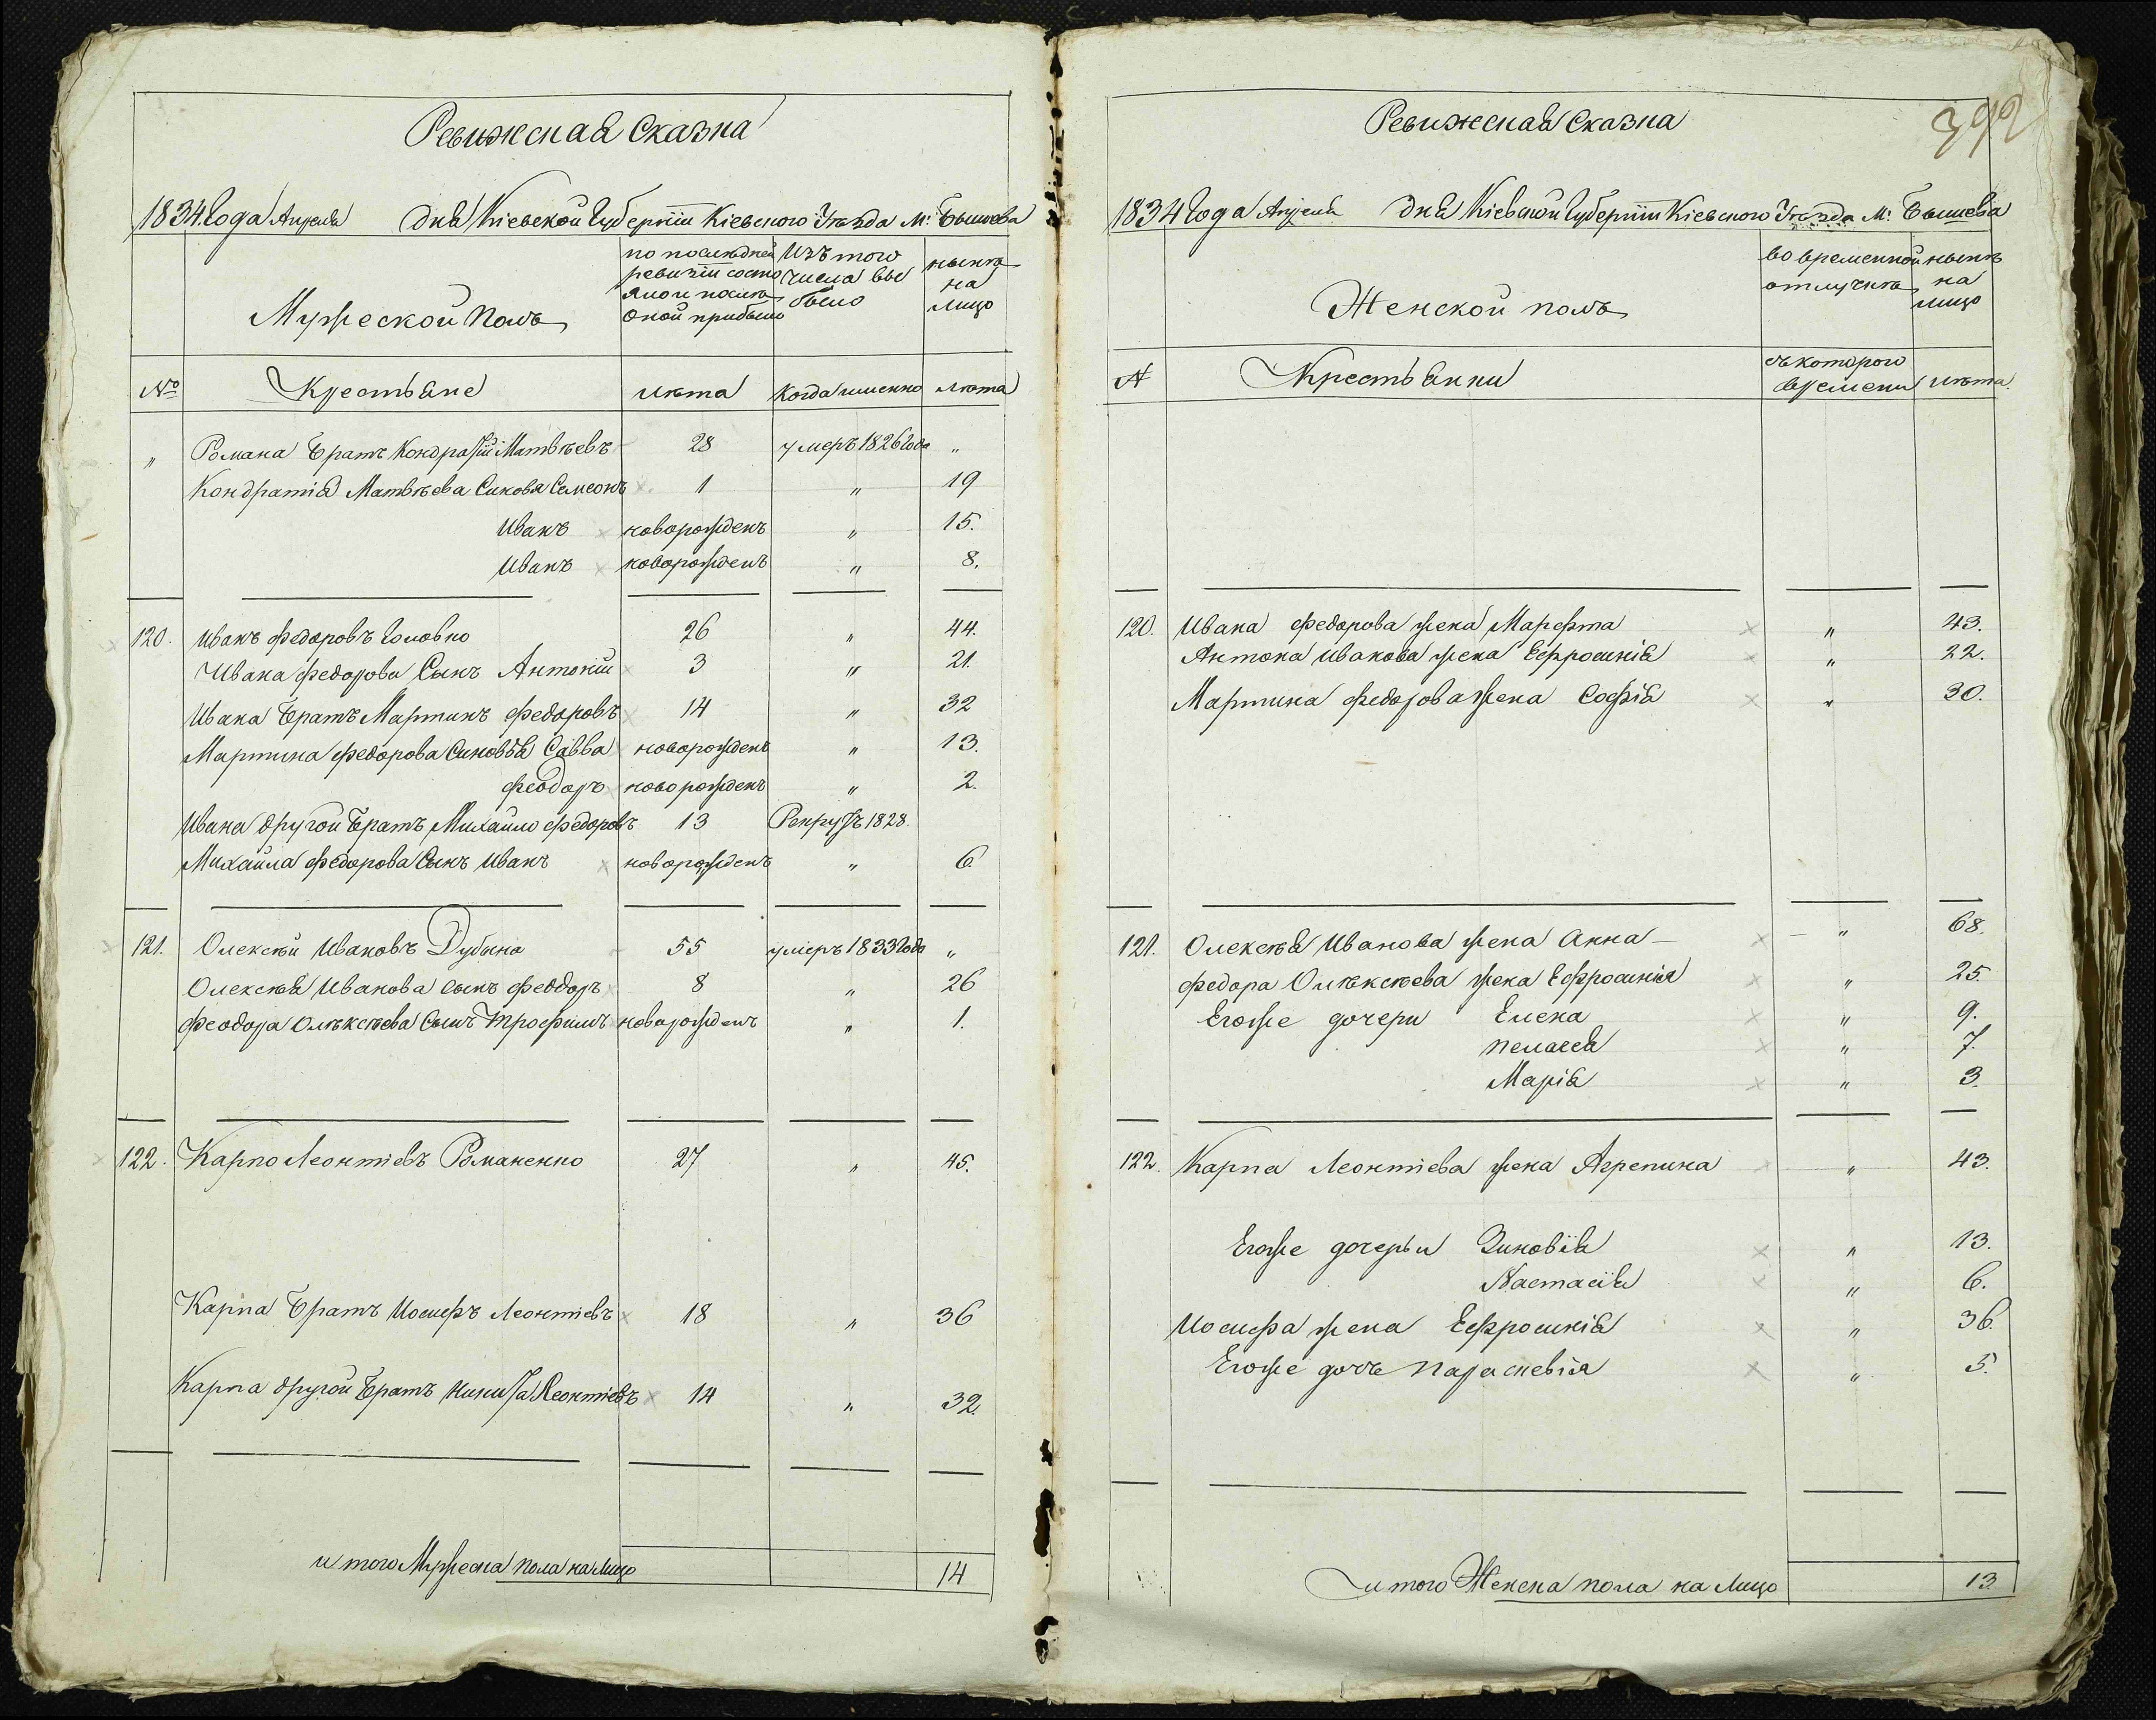 Ревижская Сказка
1834 Года Апреля дня Кіевской Губерніи Кіевского Уѣзда М: Бышева
Мужеской полъ
по последней ревизіи состояло и послѣ оной прибыло
Изъ того числа выбыло
нынѣ на лицо
№
Крестьяне
лѣта
когда именно
лѣта
„ Романа Братъ Кондратій Матвѣевъ 28 умеръ 1826 Года „
Кондратія Матвѣева Сыновя Семеонъ 1 „ 19
Иванъ новорожденъ „ 15.
Иванъ новорожденъ „ 8.
120. Иванъ Федоровъ Головко 26 „ 44.
Ивана Федорова Сынъ Антоній 3 „ 21.
Ивана Братъ Мартинъ Федоровъ 14 „ 32
Мартина Федорова Синовья Савва новорожденъ „ 13.
Феодоръ новорожденъ „ 2.
Ивана другой Братъ Михайло Федоровъ 13 Рекрутъ 1828.
Михайла Федорова Сынъ Иванъ новорожденъ „ 6.
121. Олексѣй Ивановъ Дубына 55 умеръ 1833 Года „
Олексѣя Иванова сынъ Феодоръ 8 „ 26
Феодора Олѣксѣева Сынъ Трофимъ новорожденъ „ 1.
122. Карпо Леонтіевъ Романенко 27 „ 45.
Карпа Братъ Иосифъ Леонтіевъ 18 „ 36
Карпа другой Братъ Никита Леонтіевъ 14 „ 32.
и того Мужеска пола на лицо 14
392
Ревижская Сказка
1834 Года Апреля дня Кіевской Губерніи Кіевского Уѣзда М: Бышева
Женской полъ
во временной отлучкѣ
нынѣ на лицо
№
Крестьянки
съ которого времени
лѣта.
120. Ивана Федорова жена Марфта „ 43.
Антона Иванова жена Ефросинія „ 22.
Мартина Федорова жена Софія „ 30.
121. Олексѣя Иванова жена Анна „ 68.
Федора Олѣксѣева жена Ефросинія „ 25.
Егоже дочери Елена „ 9.
Пелагея „ 7.
Марія „ 3.
122. Карпа Леонтіева жена Агрепина „ 43.
Егоже дочерьи Зиновія „ 13.
Настасія „ 6.
Иосифа жена Ефросинія „ 36.
Егоже дочь Параскевія „ 5.
и того Женска пола на лицо 13.